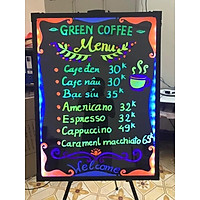 GREEN COFFEE
Menu
Cafe đen 30k
Cafe nâu 30k
Bạc sỉu 35k
Americano 32k
Espresso 32k
Cappuccino 49k
Caramenl macchiato 69k
Welcome